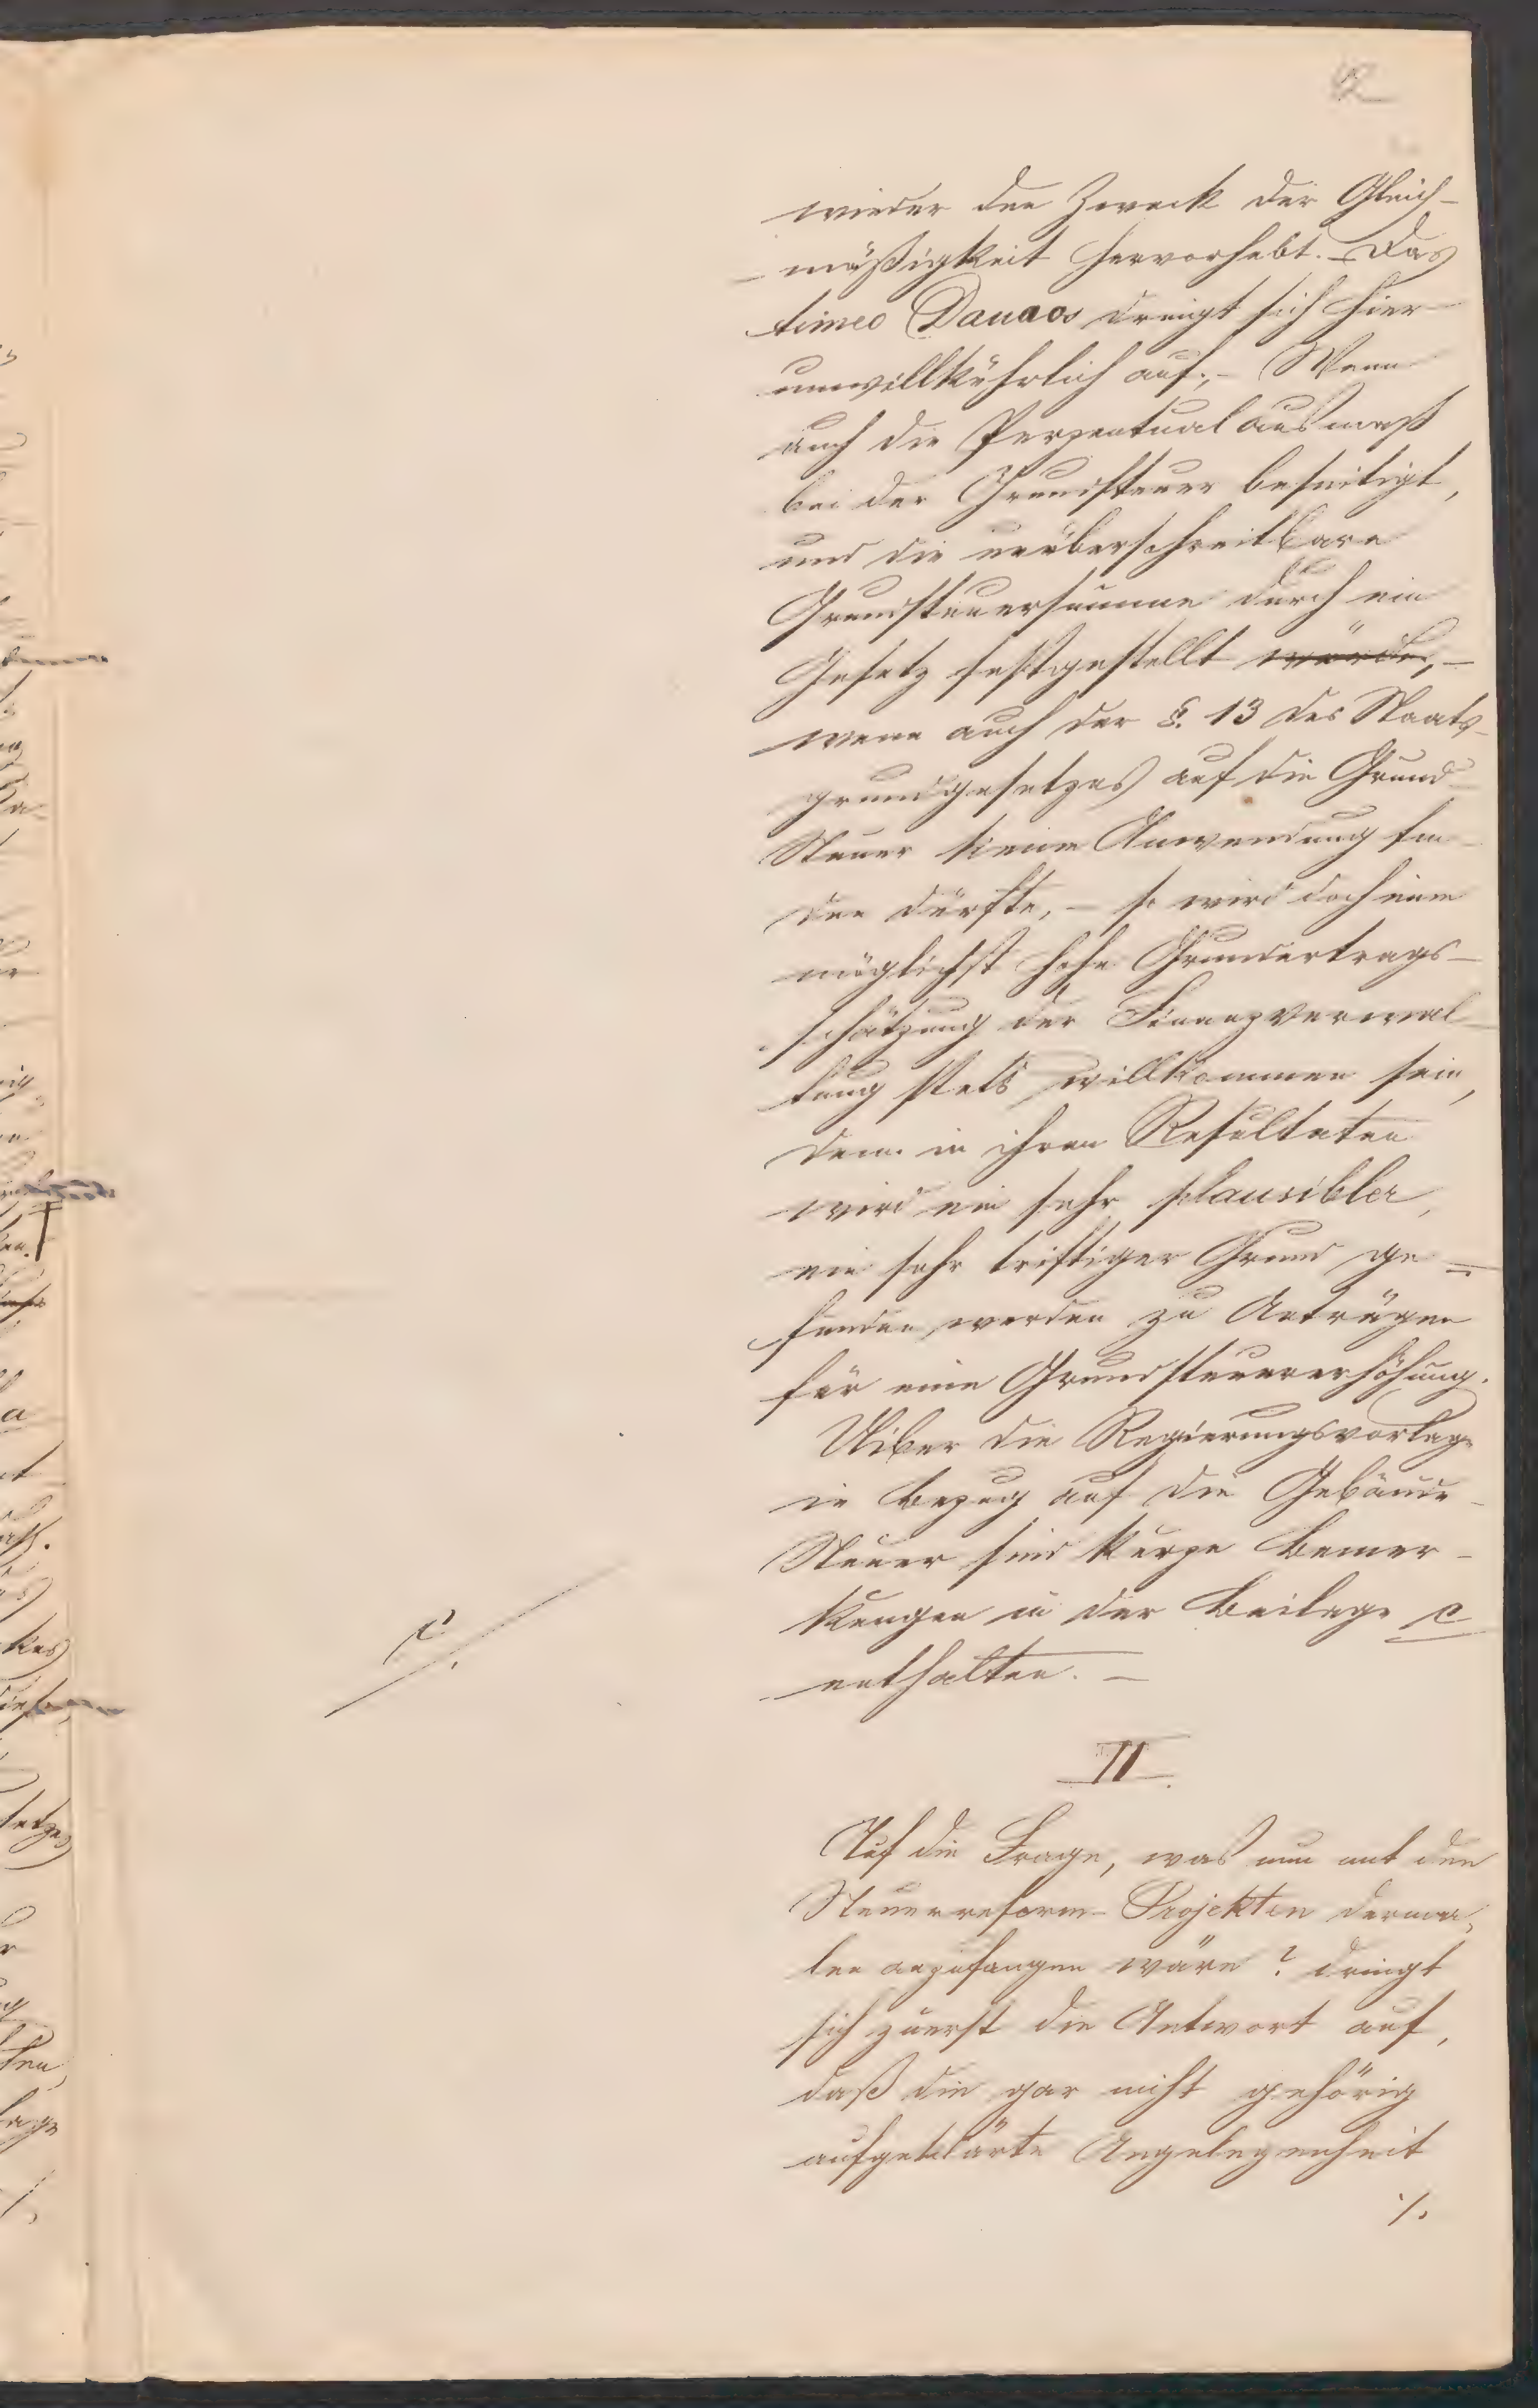 12
wieder den Zweck der Gleich-
mäßigkeit hervorhebt. – Das
timeo Danaos drengt sich hier
unwillkührlich auf; – Wenn
auch die Perzentual ausmaß
bei der Grundsteuer beseitigt,
und die unüberschreitbare
Grundsteuersumme durch ein
Gesetz festgestellt würde, –
wenn auch der §. 13 des Staats-
grundgesetzes auf die Grund-
Steuer keine Anwendung fin-
den dürfte, – so wird doch eine
möglichst hohe Grundertrags-
schätzung der Finanzverwal-
tung stets willkommen sein,
denn in ihren Resultaten
wird ein sehr plausibler,
ein sehr triftiger Grund ge=
funden werden zu Anträgen
für eine Grundsteuererhöhung.
Uiber die Regierungsvorlage
in Bezug auf die Gebäude-
Steuer sind kurze Bemer-
kungen in der Beilage C
C
enthalten. –
II
Auf die Frage, was nun mit den
Steuerreform-Projekten derma-
len anzufangen wäre? dringt
sich zuerst die Antwort auf,
daß die gar nicht gehörig
aufgeklärte Angelegenheit
./.